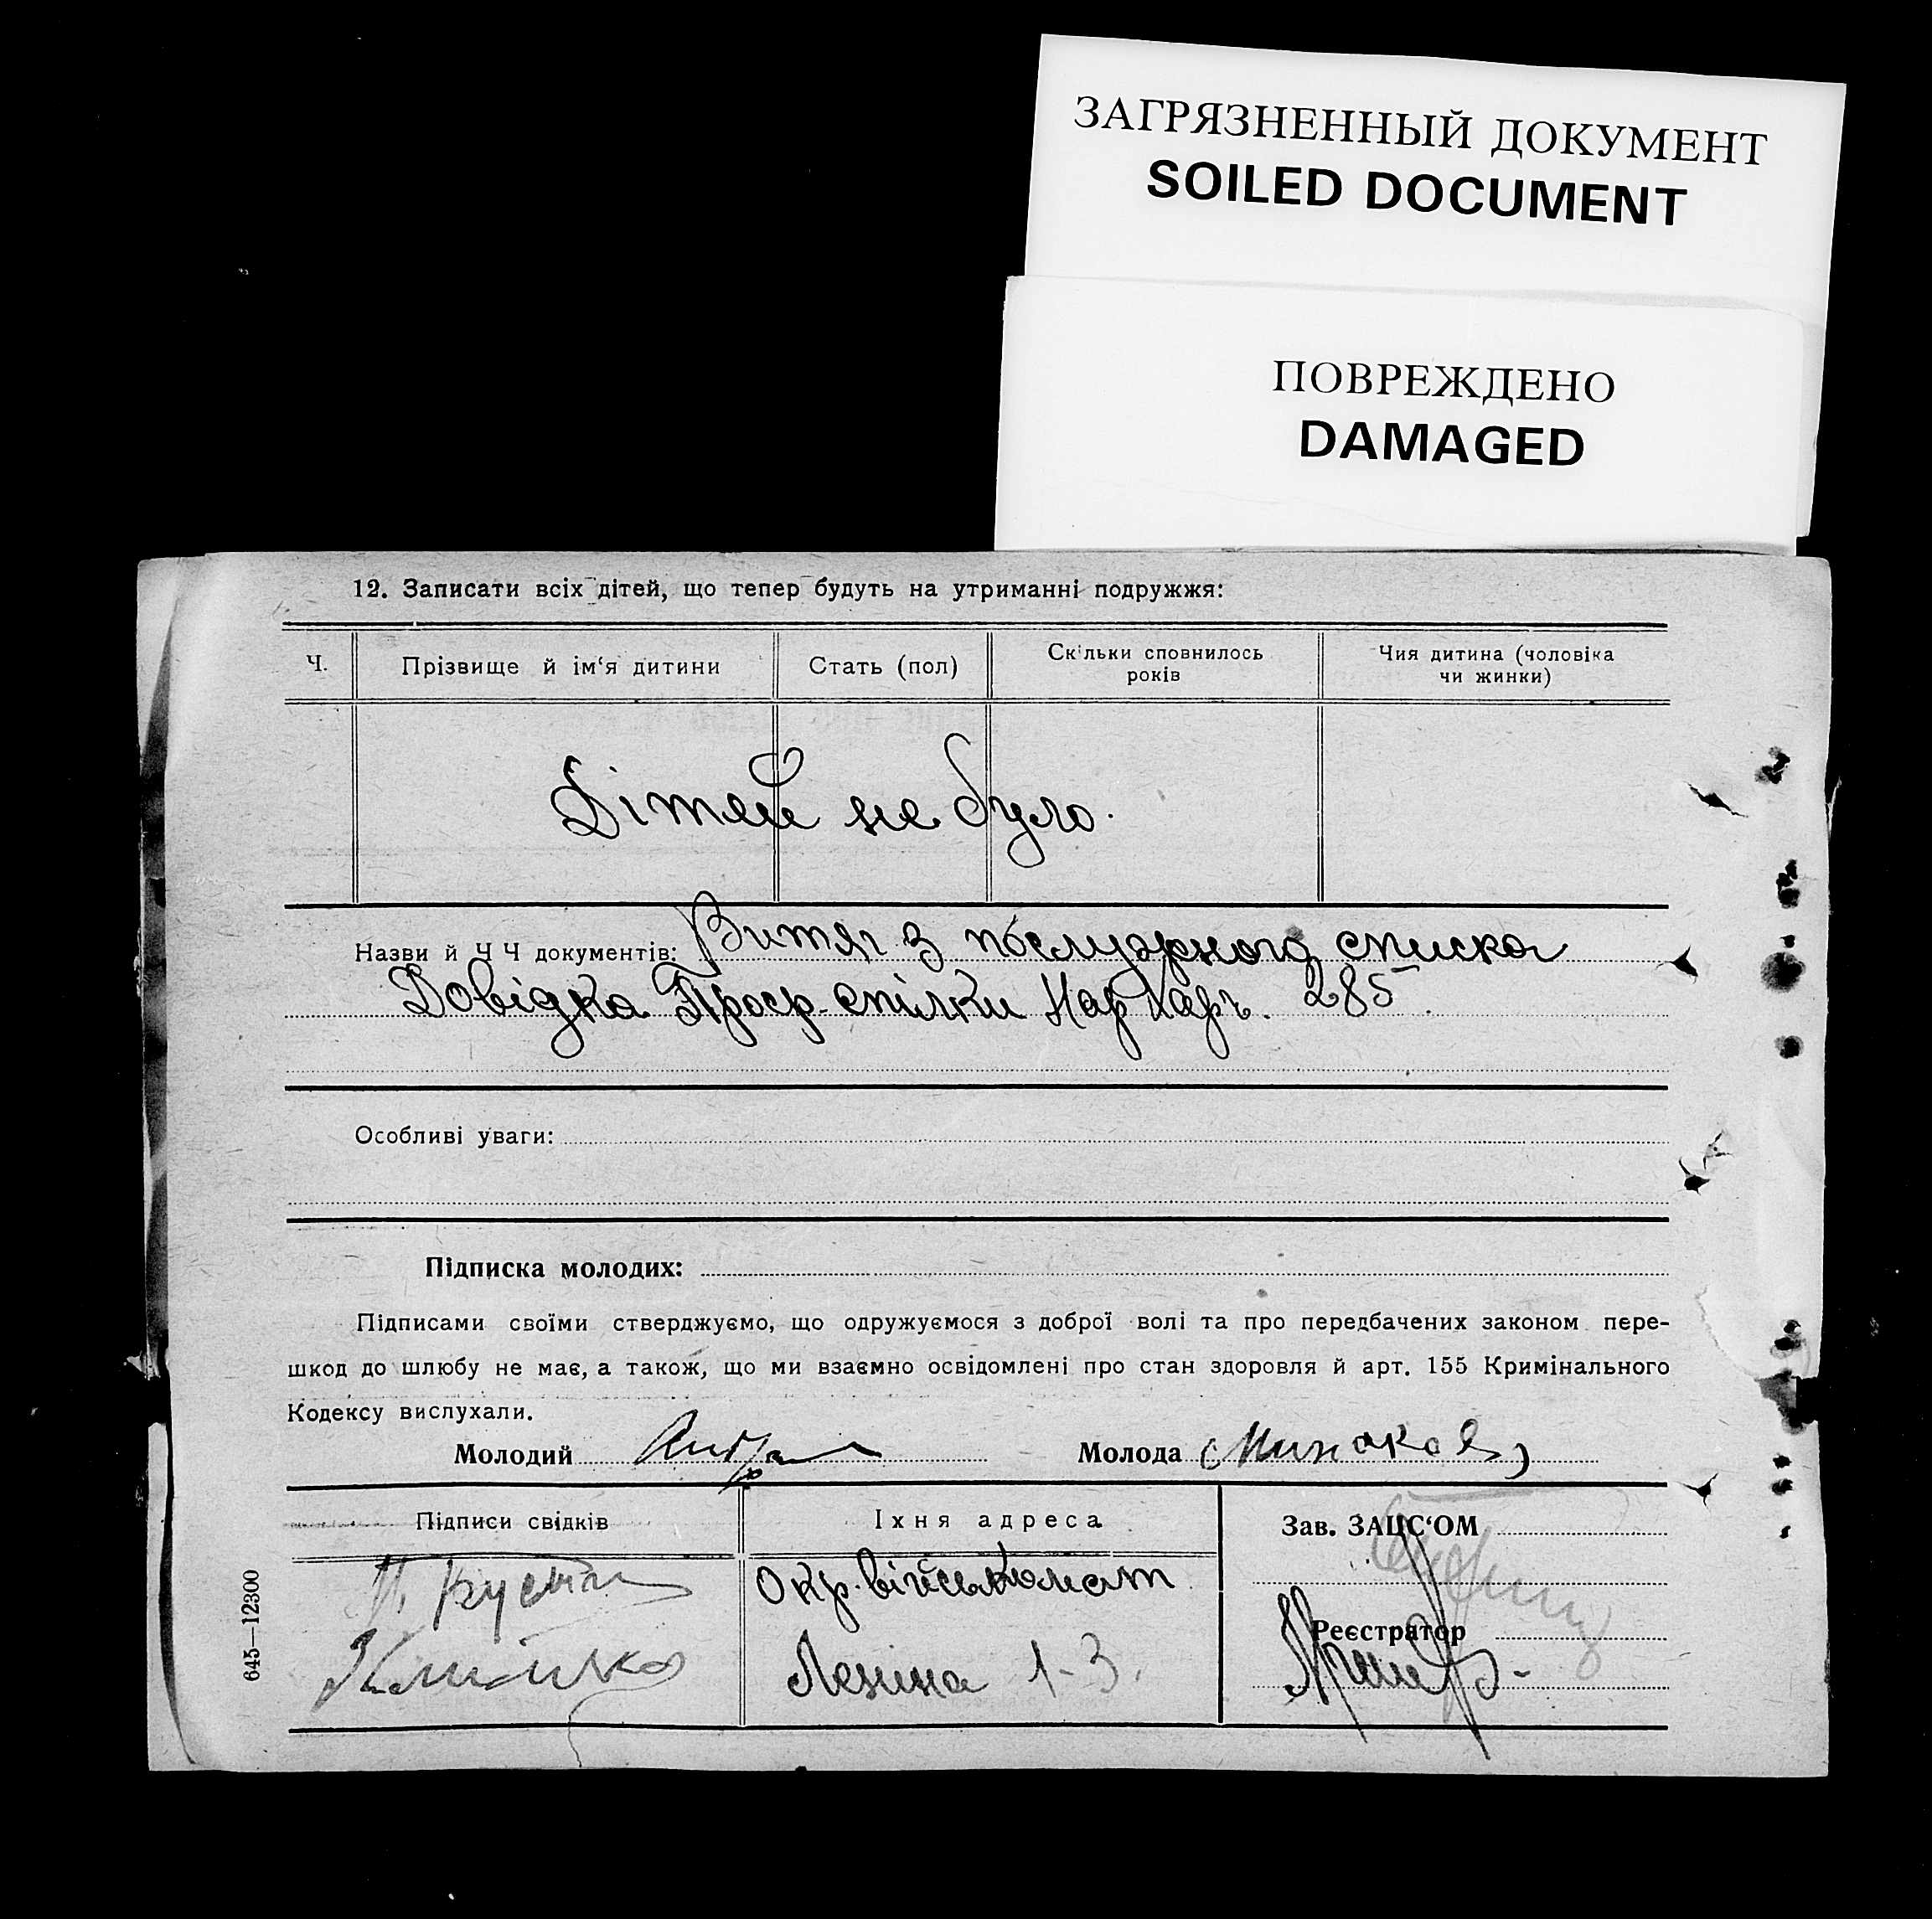 ЗАГРЯЗНЕННЫЙ ДОКУМЕНТ
SOILED DOCUMENT
ПОВРЕЖДЕНО
DAMAGED
12. Записати всіх дітей, що тепер будуть на утриманні подружжя:
Ч. Прізвище й ім‘я дитини Стать (пол) Скільки сповнилось років Чия дитина (чоловіка чи жинки)
Дітей не було.
Назви й Ч Ч документів: Витяг з послужного списка
Довідка Проф. спілки Нар Харч. 285
Особливі уваги:
Підписка молодих:
Підписами своїми стверджуємо, що одружуємося з доброї волі та про передбачених законом пере-
шкод до шлюбу не має, а також, що ми взаємно освідомлені про стан здоровля й арт. 155 Кримінального
Кодексу вислухали.
Молодий Молода
Підписи свідків Їхня адреса Зав. ЗАЦС‘ОМ
Окр. військомат
Реєстратор
Леніна 1-3.
645—12300